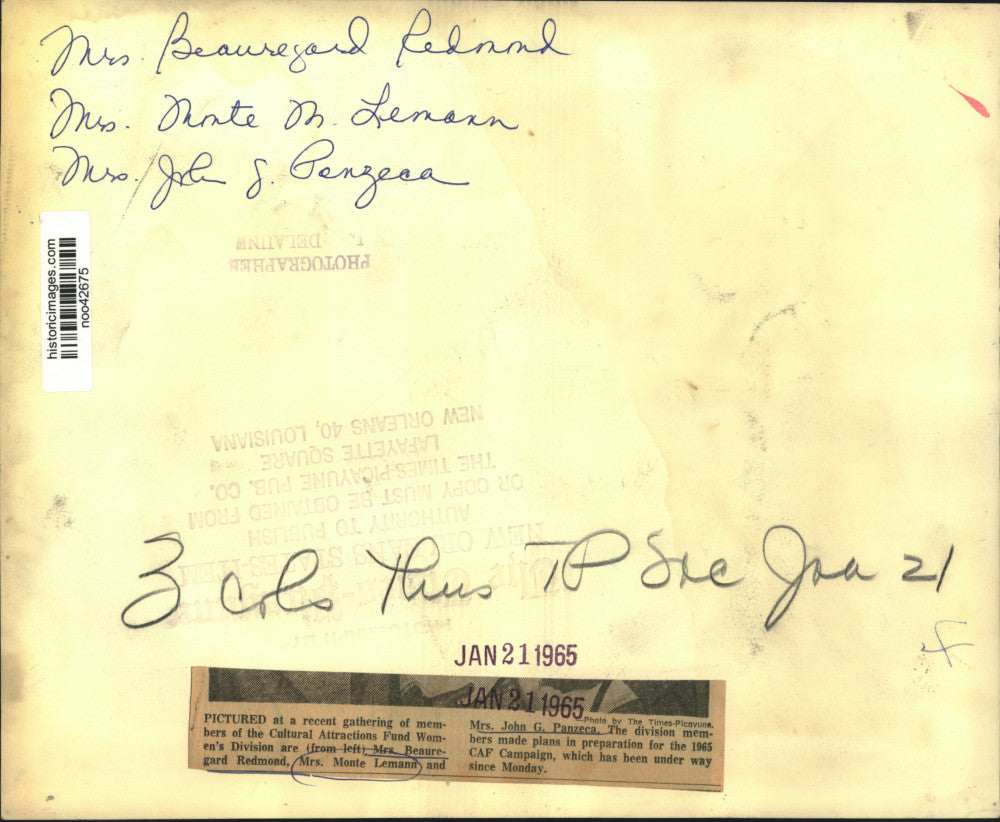 Mrs. Beauregard Redmond
Mrs. Monte M. Lemann
Mrs. John G. Panzeca
historicimages.com
noo42675
PHOTOGRAPHER
DELAUNE
NEW ORLEANS STATES-ITEM
AUTHORITY TO PUBLISH
OR COPY MUST BE OBTAINED FROM
THE TIMES-PICAYUNE PUB. CO.
LAFAYETTE SQUARE
NEW ORLEANS 40, LOUISIANA
3 cols Thurs TP Soc Jan 21
JAN 21 1965
JAN 21 1965
Photo by The Times-Picayune.
PICTURED at a recent gathering of mem-
bers of the Cultural Attractions Fund Wom-
en's Division are (from left) Mrs. Beaure-
gard Redmond, Mrs. Monte Lemann and
Mrs. John G. Panzeca. The division mem-
bers made plans in preparation for the 1965
CAF Campaign, which has been under way
since Monday.